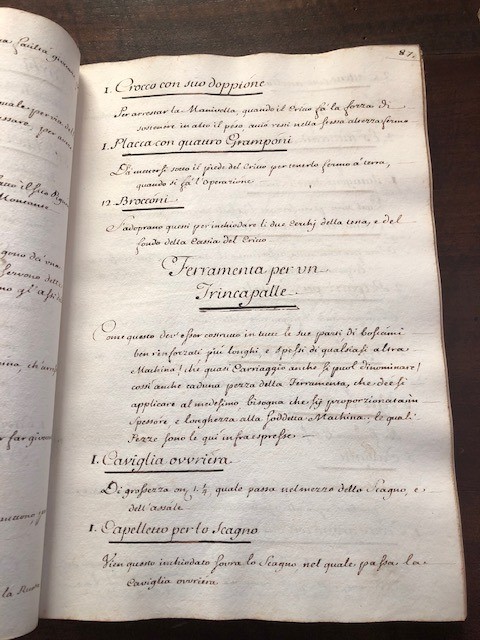 87.
1. Crocco con suo doppione
Per arrestar la Manivella, quando il Crico fà la forza di
sostenere in alto il peso, acciò resti nella stessa altezza fermo
1. Placca con quattro Gramponi
Di mettersi sotto il piede del Crico per tenerlo fermo à terra,
quando si fà l'operazione
12 Brocconi
S'adoprano questi per inchiodare li due Cerchj della testa, e del
fondo della Cassia del Crico
Ferramenta per un
Trincapalle
Come questo dev'esser costrutto in tutte le sue parti di boscami
ben rinforzati più longhi e spessi di qualsiasi altra
Machina (che quasi Carriaggio anche si puol dinominare)
cossì anche caduna pezza della Ferramenta, che deesi
applicare al medesimo bisogna che sij proporzionata in
spessore, e longhezza alla suddetta Machina, le quali
Pezze sono le qui infraespresse
1. Caviglia ovvriera
Di grossezza on. 1¼, quale passa nel mezzo dello Scagno, e
dell'assale
1. Capelletto per lo Scagno
Vien questo inchiodato sovra lo Scagno, nel quale passa la
Caviglia ovvriera